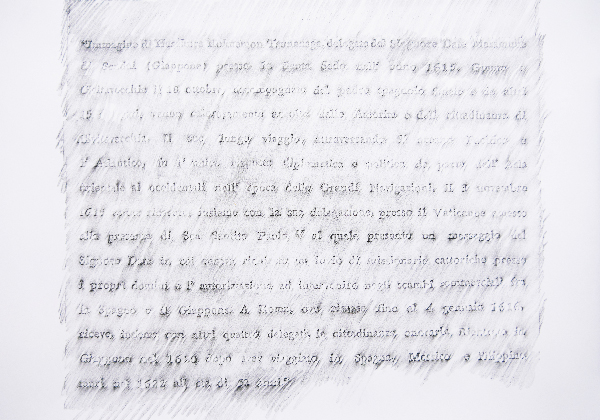 "Immagine di Hasekura Rokuemon Tsunenaga, delegato del Signore Date Masamune
di Sendai (Giappone) presso la Santa Sede nell' anno 1615. Giunse a
Civitavecchia il 18 ottobre, accompagnato dal padre spagnolo Sotelo e da altri
e della cittadinanza di
Civitavecchia. Il suo lungo viaggio, attraversando il Pacifico e
l' Atlantico, fu l'unica diplomatica e politica da parte dell' Asia
orientale ai occidentali nell' epoca delle Grandi Navigazioni. Il 3 novembre
1615 insieme con la sua delegazione, presso il Vaticano
alla presenza di Sua Santità Paolo V al quale presentò un messaggio del
Signore Date in cui invio di missionari cattolici presso
i propri domini e l' autorizzazione ad negli scambi commerciali fra
la Spagna e il Giappone. A Roma, ove rimase fino al 4 gennaio 1616,
riceve, insieme con altri quattro delegati la cittadinanza onoraria. Ritorna in
Giappone nel 1620 dopo aver viaggiato in Spagna, Messico e Filippine
nel 1622 all' età di 51 anni"